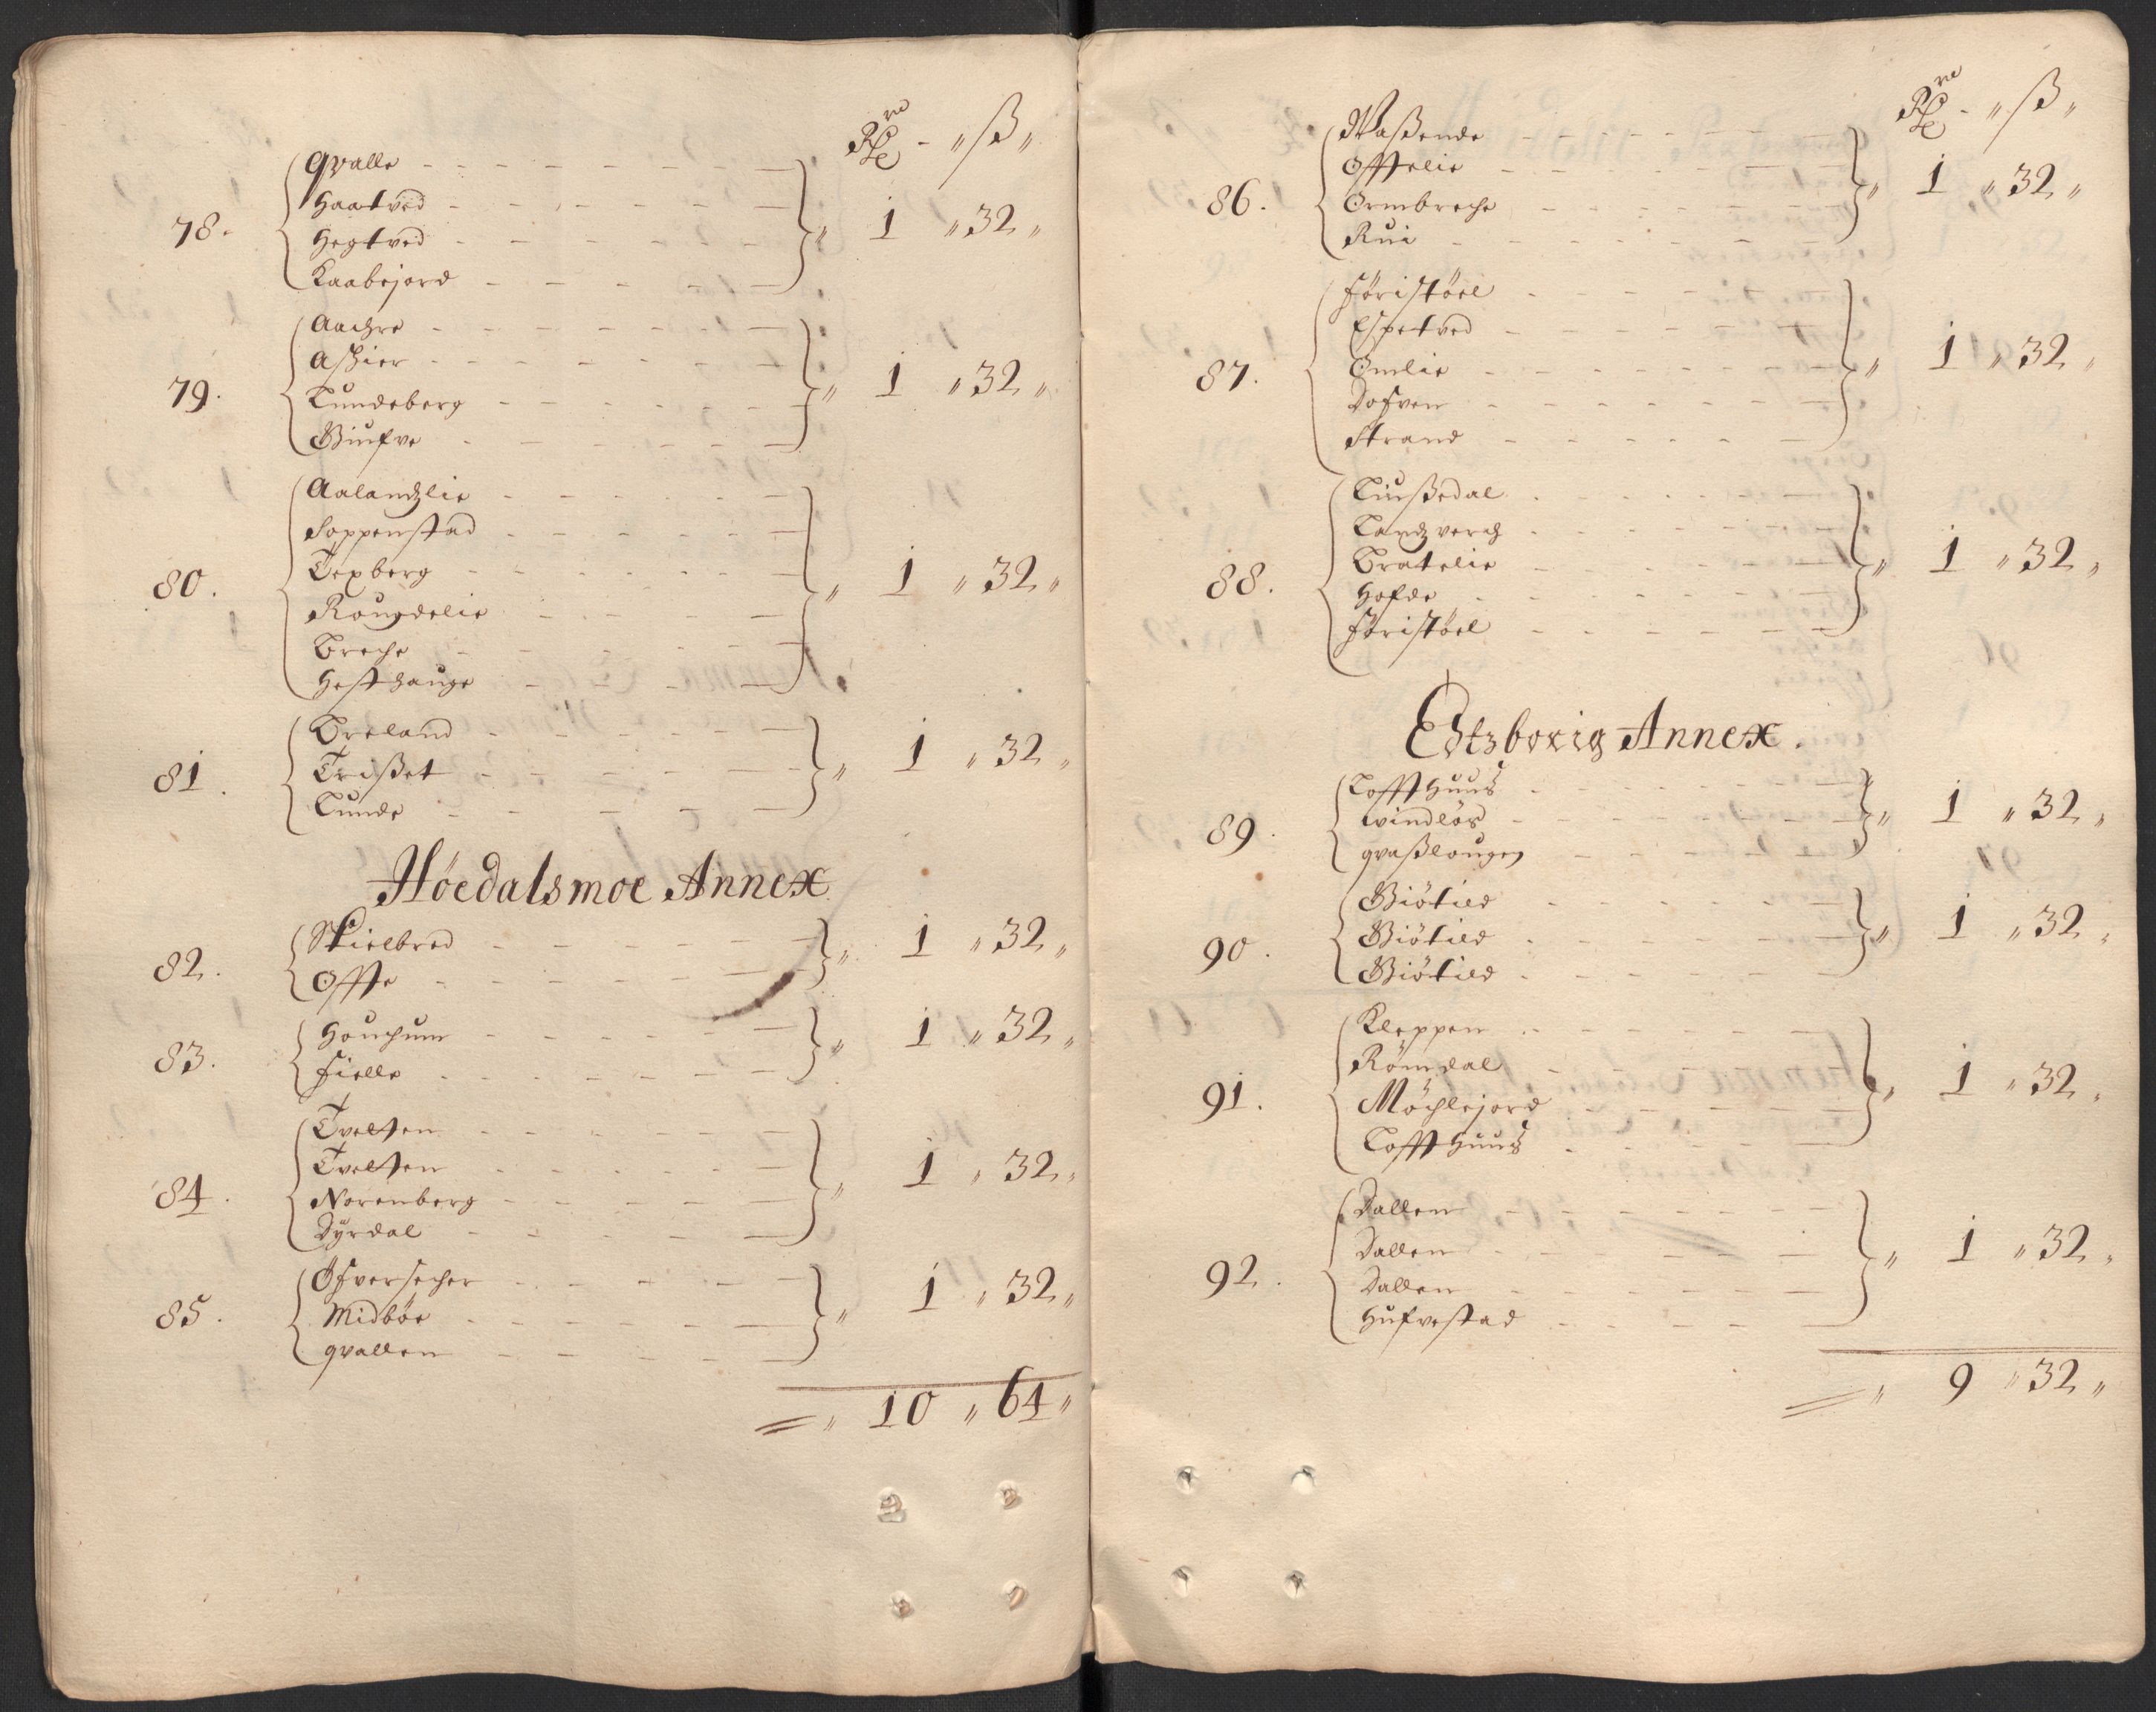 Rdr - " ß "
78. Qvalle
Haatved
Hegtved
Kaabejord
" 1 " 32 "
79. Aachre
Aschier
Lundeberg
Biufve
" 1 " 32 "
80. Aalandzlie
Soppenstad
Texberg
Rougdelie
Breche
Hesthauge
" 1 " 32 "
81. Breland
Trißet
Lunde
" 1 " 32 "
Höedalsmoe Annex
82. Skielbred
Offte
" 1 " 32 "
83. Houchum
Fielle
" 1 " 32 "
84. Tvelten
Tvelten
Norenberg
Dyrdal
" 1 " 32 "
85. Öfversecher
Midböe
Qvallen
" 1 " 32 "
" 10 " 64 "
Rdr - " ß "
86. Waßende
Offtelie
Ormbreche
Rui
" 1 " 32 "
87. Föristöel
Espetved
Omlie
Dofven
Strand
" 1 " 32 "
88. Liußedal
Landzverch
Bratelie
Hofde
Föristöel
" 1 " 32 "
Edtzborig Annex.
89. Loffthuus
Vindlös
Qvaßlougen
" 1 " 32 "
90. Biötied
Biötied
Biötied
" 1 " 32 "
91. Kleppen
Römdal
Möchlejord
Loffthuus
" 1 " 32 "
92. Dallen
Dallen
Dallen
Hufvestad
" 1 " 32 "
" 9 " 32 "